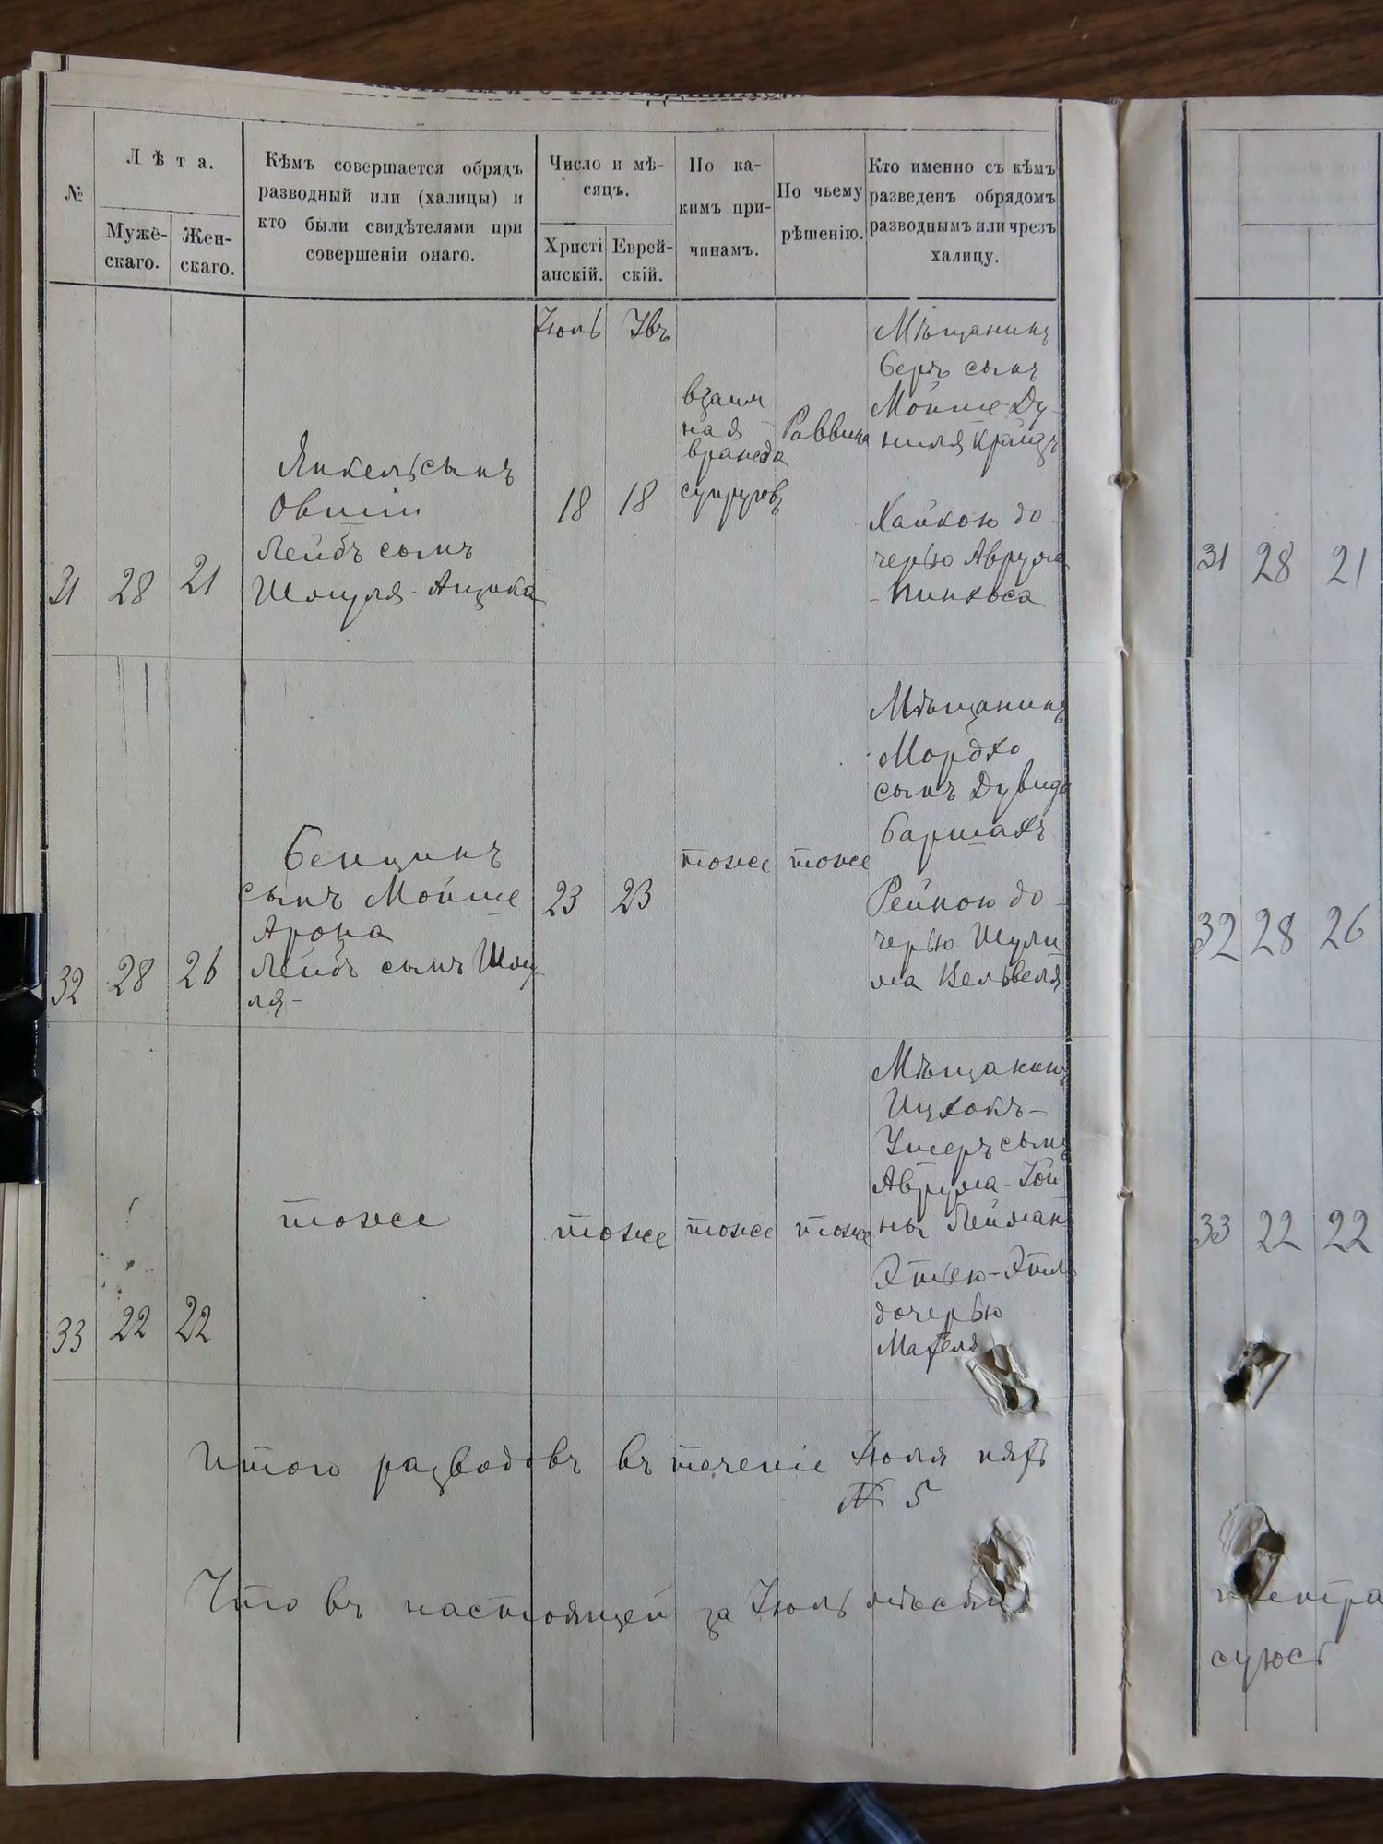 №
Лѣта.
Мужё-
скаго.
Жен-
скаго.
Кѣмъ совершается обрядъ
разводный или (халицы) и
кто были свидѣтелями при
совершеніи онаго.
Число и мѣ-
сяцъ.
Христі
анскій.
Еврей-
скій.
По ка-
кимъ при-
чинамъ.
По чьему
рѣшенію.
Кто именно съ кѣмъ
разведенъ обрядомъ
разводнымъ или чрезъ
халицу.
31
28
21
Янкель сынъ
Овшіи
Лейбъ сынъ
Шмуля-Ицика
Іюль
18
18
взаим
ная
вражда
супруговъ
Раввина
Мѣщанинъ
Беръ сынъ
Мойше-Ду-
Хайкою до-
черью Аврума
-Пинхаса
31 28 21
32
28
26
Бенцинъ
сынъ Мойше
Арона
Лейбъ сынъ Шму
ля-
23
23
тоже
тоже
Мѣщанинъ
Мордхо
сынъ Дувида
Баршахъ
Рейною до-
черью Шули
ма Вельвеля
32 28 26
33
22
22
тоже
тоже
тоже
тоже
Мѣщанинъ
Ицхокъ-
Ушеръ сынъ
Аврума-Іой
ны Лейман
дочерью
33 22 22
Итого разводовъ въ теченіе Іюля пять
№ 5
Что въ настоящей за Іюль мѣсяц
суюсь